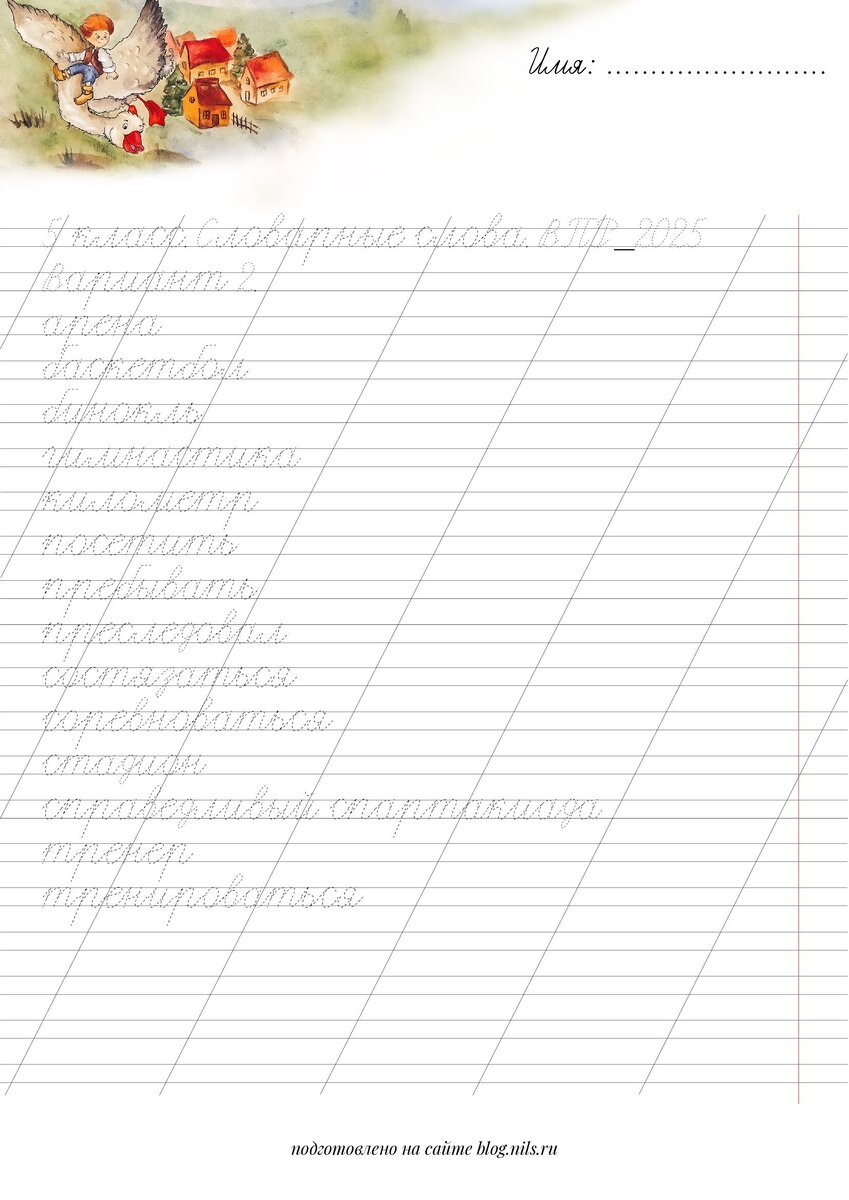 Имя: ........................
5 класс. Словарные слова. ВПР_2025
Вариант 2.
арена
баскетбол
бинокль
гимнастика
километр
посетить
пребывать
преследовал
состязаться
соревноваться
стадион
справедливый спартакиада
тренер
тренироваться
подготовлено на сайте blog.nils.ru